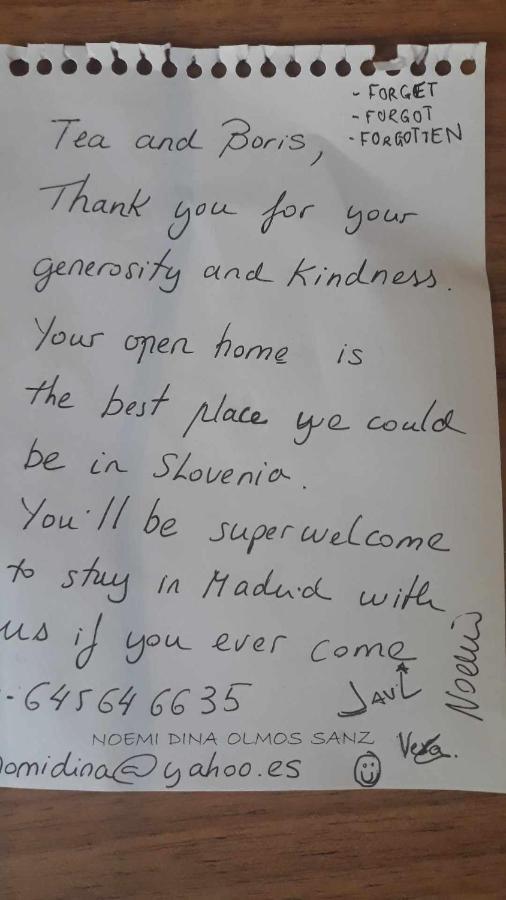 - FORGET
- FORGOT
- FORGOTTEN
Tea and Boris,
Thank you for your
generosity and kindness.
Your open home is
the best place we could
be in Slovenia.
You'll be superwelcome
to stay in Madrid with
us if you ever come
-645646635
Noemi
NOEMI DINA OLMOS SANZ
omidina@yahoo.es